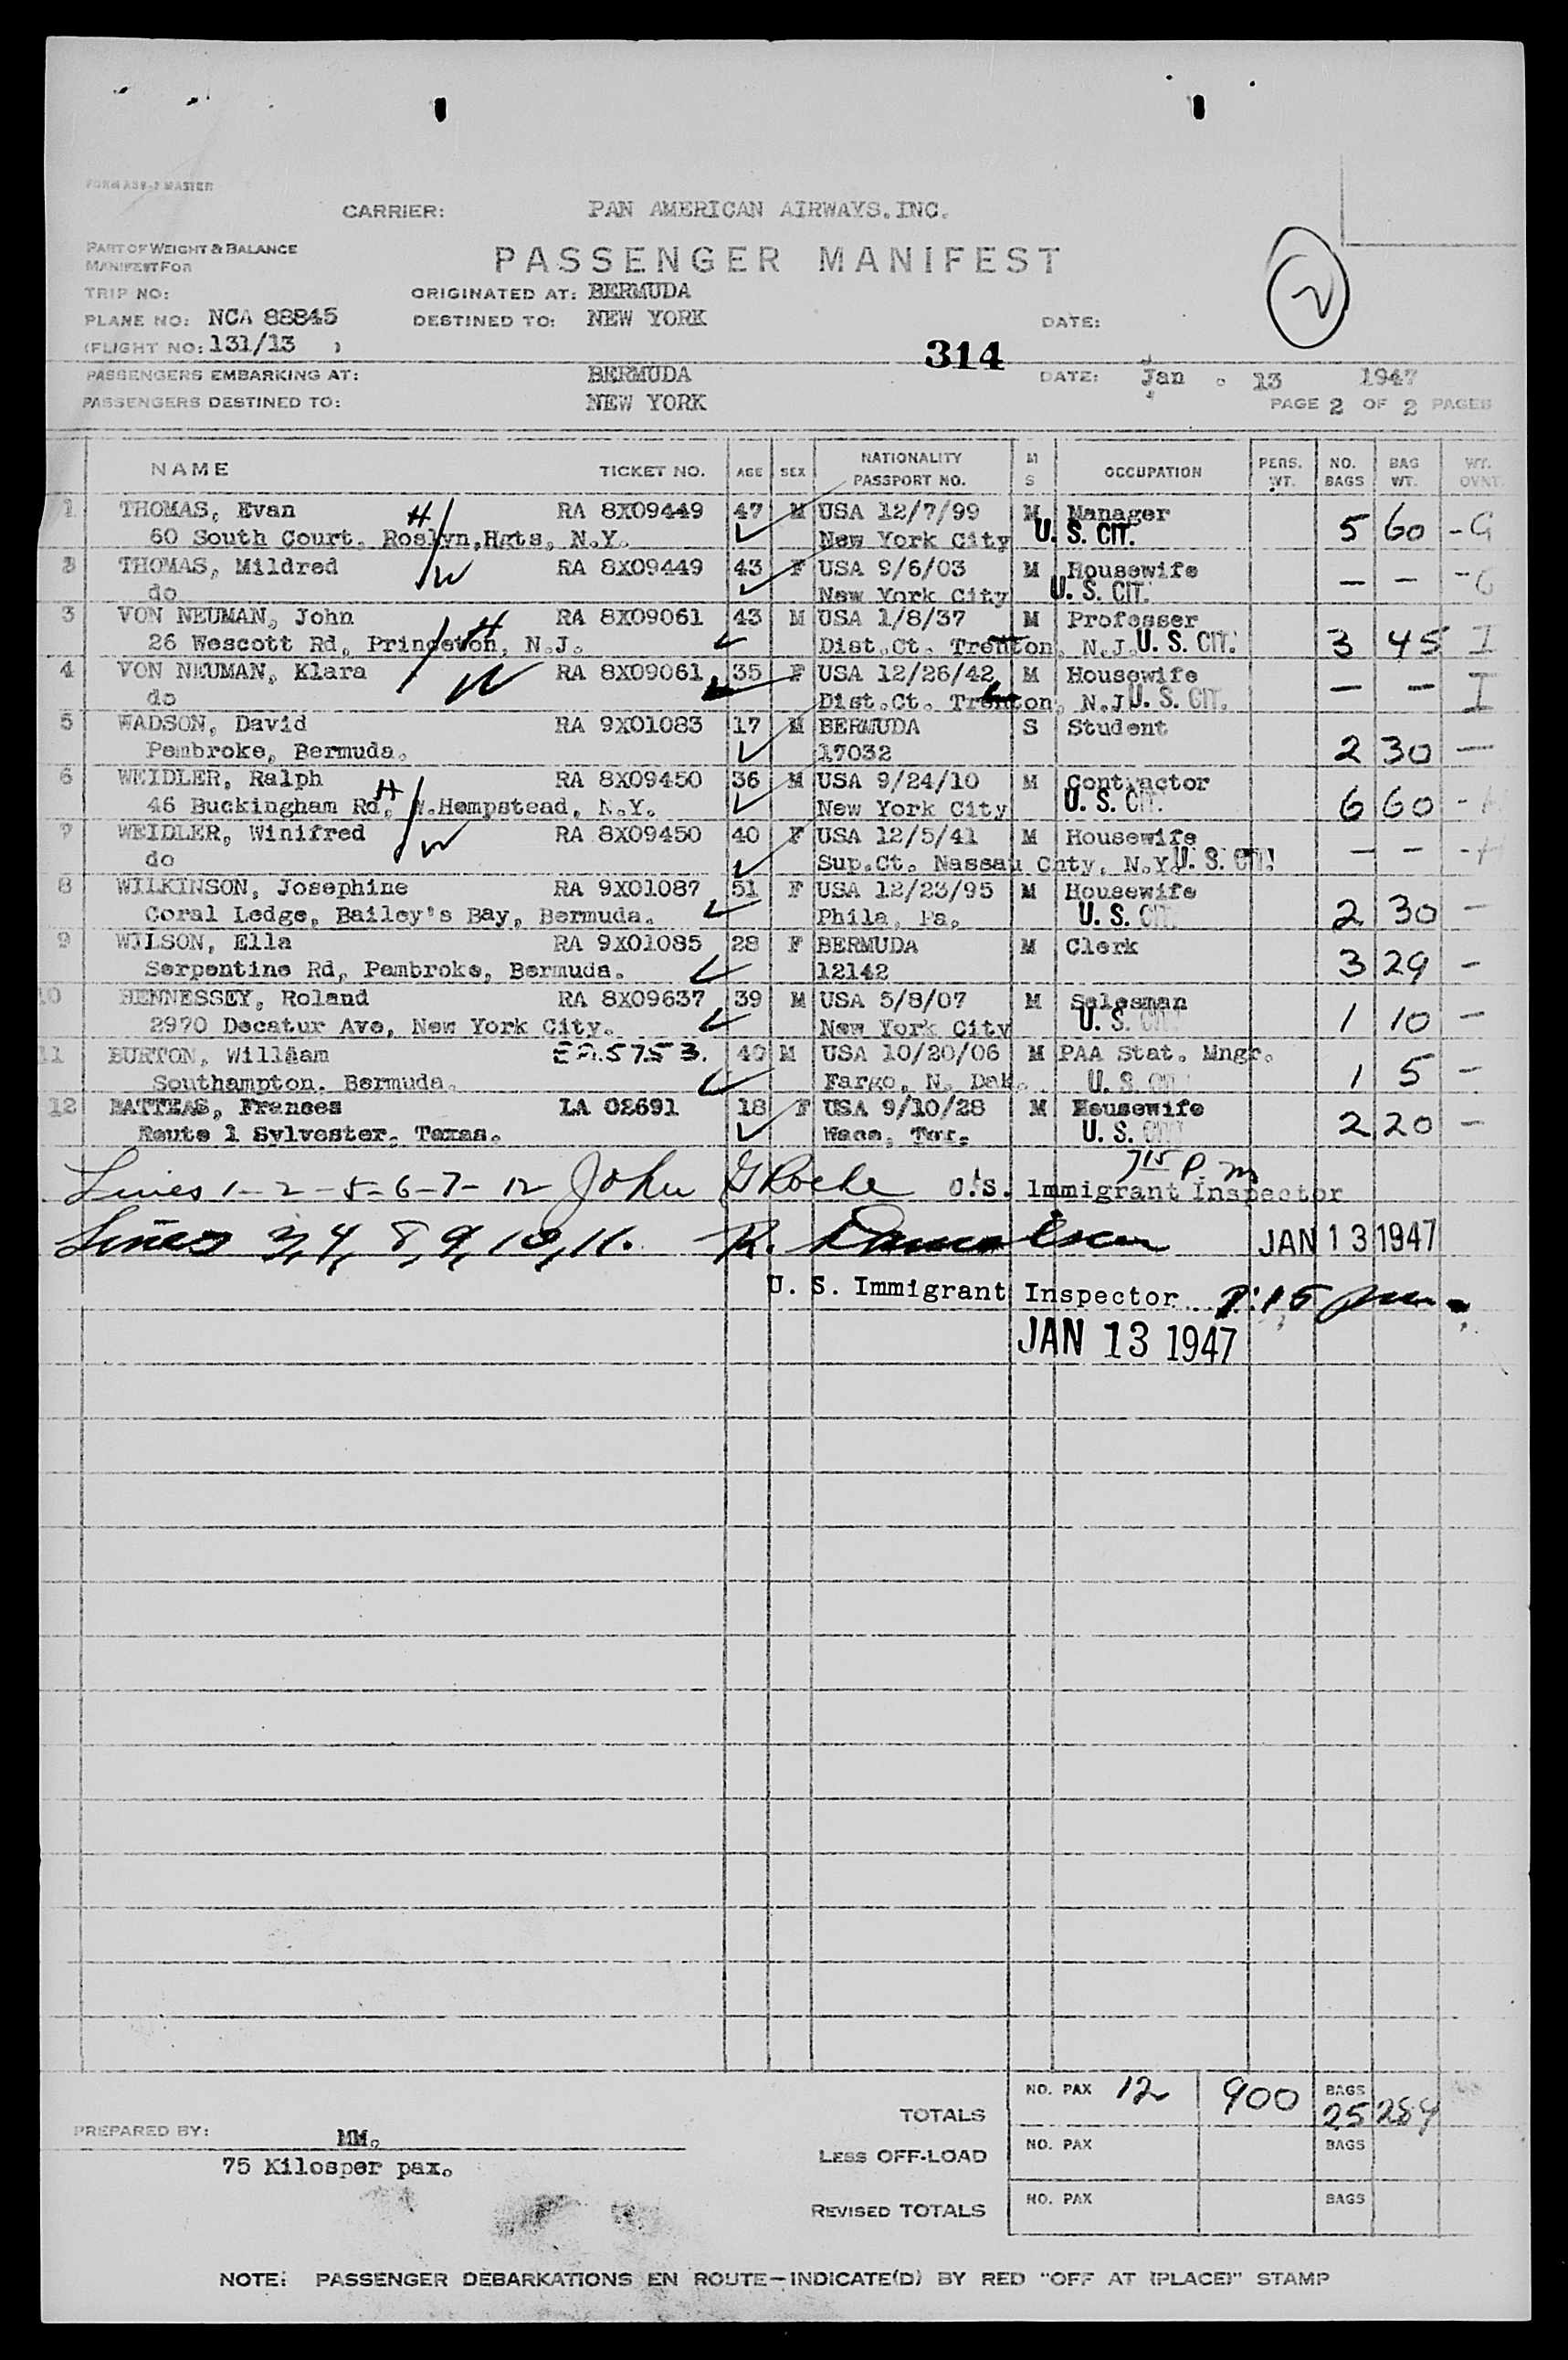 FORM ASW-2 MASTER
CARRIER: PAN AMERICAN AIRWAYS.INC.
PART OF WEIGHT & BALANCE
MANIFEST FOR
PASSENGER MANIFEST
2
TRIP NO: ORIGINATED AT: BERMUDA
PLANE NO: NCA 88845 DESTINED TO: NEW YORK DATE:
(FLIGHT NO: 131/13 )
314
PASSENGERS EMBARKING AT: BERMUDA DATE: Jan . 13 1947
PASSENGERS DESTINED TO: NEW YORK PAGE 2 OF 2 PAGES
NAME TICKET NO. AGE SEX NATIONALITY PASSPORT NO. M S OCCUPATION PERS. WT. NO. BAGS BAG WT. WT. OVNT.
1 THOMAS, Evan H RA 8X09449 47 M USA 12/7/99 M Manager 5 60 - G
60 South Court, Roslyn,Hgts, N.Y. New York City U. S. CIT.
THOMAS, Mildred W RA 8X09449 43 F USA 9/6/03 M Housewife - - - G
do New York City U. S. CIT.
3 VON NEUMAN, John H RA 8X09061 43 M USA 1/8/37 M Professer 3 45 I
26 Wescott Rd, Princeton, N.J. Dist.Ct. Trenton, N.J. U. S. CIT.
4 VON NEUMAN, Klara W RA 8X09061 35 F USA 12/26/42 M Housewife - - I
do Dist.Ct. Trenton, N.J U. S. CIT.
5 WADSON, David RA 9X01083 17 M BERMUDA S Student 2 30 -
Pembroke, Bermuda. 17032
6 WEIDLER, Ralph H RA 8X09450 36 M USA 9/24/10 M Contractor 6 60 - H
46 Buckingham Rd, W.Hempstead, N.Y. New York City U. S. CIT.
7 WEIDLER, Winifred W RA 8X09450 40 F USA 12/5/41 M Housewife - - - H
do Sup.Ct. Nassau Cnty, N.Y. U. S. CIT.
8 WILKINSON, Josephine RA 9X01087 51 F USA 12/23/95 M Housewife 2 30 -
Coral Ledge, Bailey's Bay, Bermuda. Phila, Pa. U. S. CIT.
9 WILSON, Ella RA 9X01085 28 F BERMUDA M Clerk 3 29 -
Serpentine Rd, Pembroke, Bermuda. 12142
10 HENNESSEY, Roland RA 8X09637 39 M USA 5/8/07 M Salesman 1 10 -
2970 Decatur Ave, New York City. New York City U. S. CIT.
11 BURTON, Willäam EA.5753. 40 M USA 10/20/06 M PAA Stat. Mngr. 1 5 -
Southampton. Bermuda. Fargo, N. Dak. U. S. CIT
12 BATTEAS, Frances LA 02691 18 F USA 9/10/28 M Housewife 2 20 -
Route 1 Sylvester. Texas. Waco, Tex. U. S. CIT
715 P. m
Lines 1-2-5-6-7-12 John G Roche U.S. Immigrant Inspector
Lines 3,4, 8,9,10,11. R. JAN 13 1947
U. S. Immigrant Inspector 7:15 pm.
JAN 13 1947
TOTALS NO. PAX 12 900 BAGS 25 289
PREPARED BY: MM.
LESS OFF-LOAD NO. PAX BAGS
75 Kilosper pax.
REVISED TOTALS NO. PAX BAGS
NOTE: PASSENGER DEBARKATIONS EN ROUTE-INDICATE(D) BY RED "OFF AT (PLACE)" STAMP